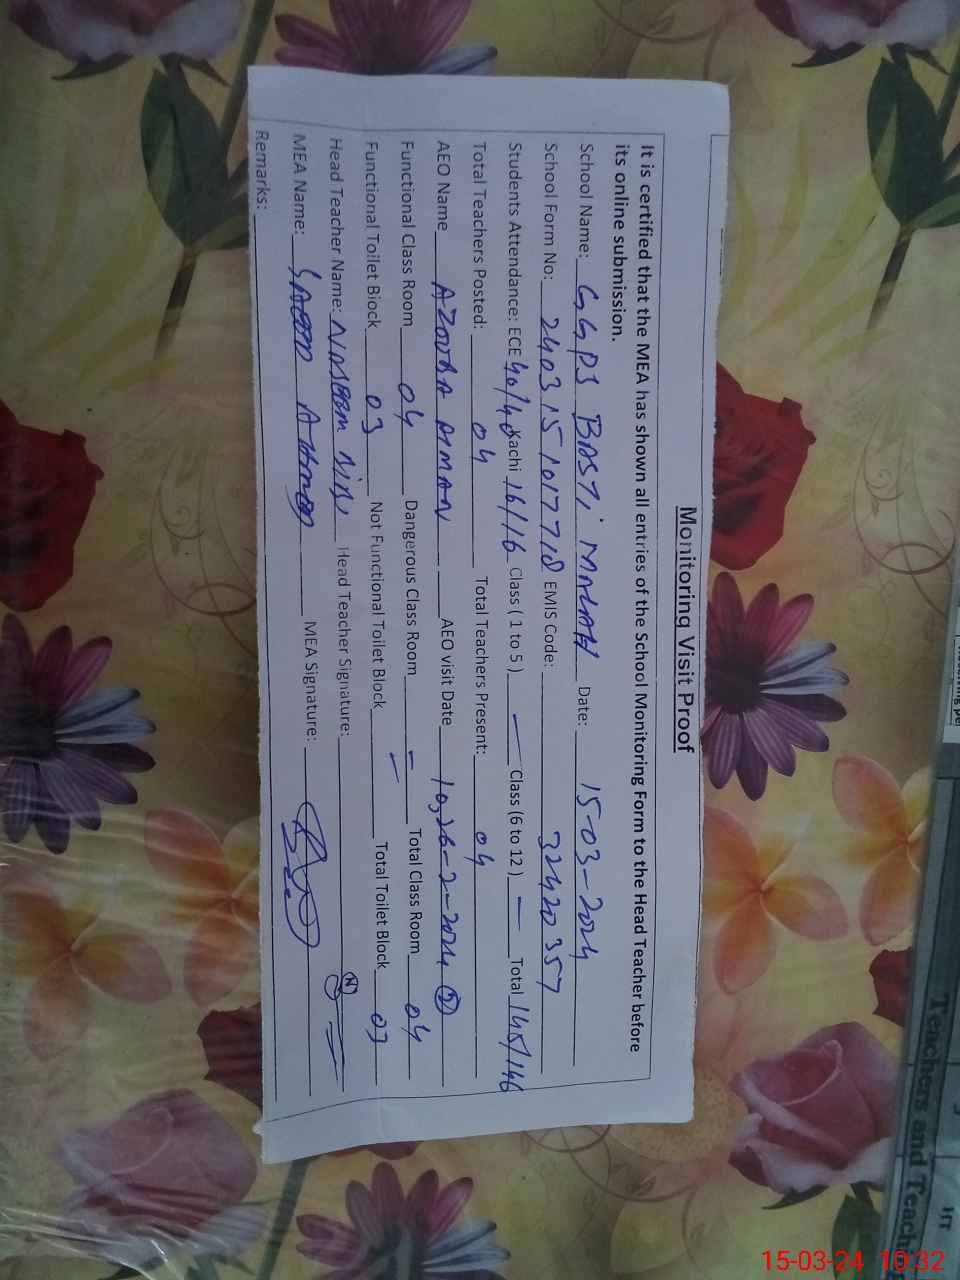 Monitoring Visit Proof
It is certified that the MEA has shown all entries of the School Monitoring Form to the Head Teacher before
its online submission.
School Name: GGPS BASTi MALAH Date: 15-03-2024
School Form No: 2403151017718 EMIS Code: 32420357
Students Attendance: ECE 40/40 Kachi 16/16 Class ( 1 to 5 ) — Class (6 to 12 ) — Total 145/146
Total Teachers Posted: 04 Total Teachers Present: 04
AEO Name AZOOBA AMAN AEO visit Date 10,26-2-2024 (2)
Functional Class Room 04 Dangerous Class Room = Total Class Room 04
Functional Toilet Block 03 Not Functional Toilet Block Total Toilet Block 03
Head Teacher Name: NASEEM Head Teacher Signature:
MEA Name: SAEED AHMED MEA Signature:
Remarks:
Teachers and Teach
HT
15-03-24 10:32